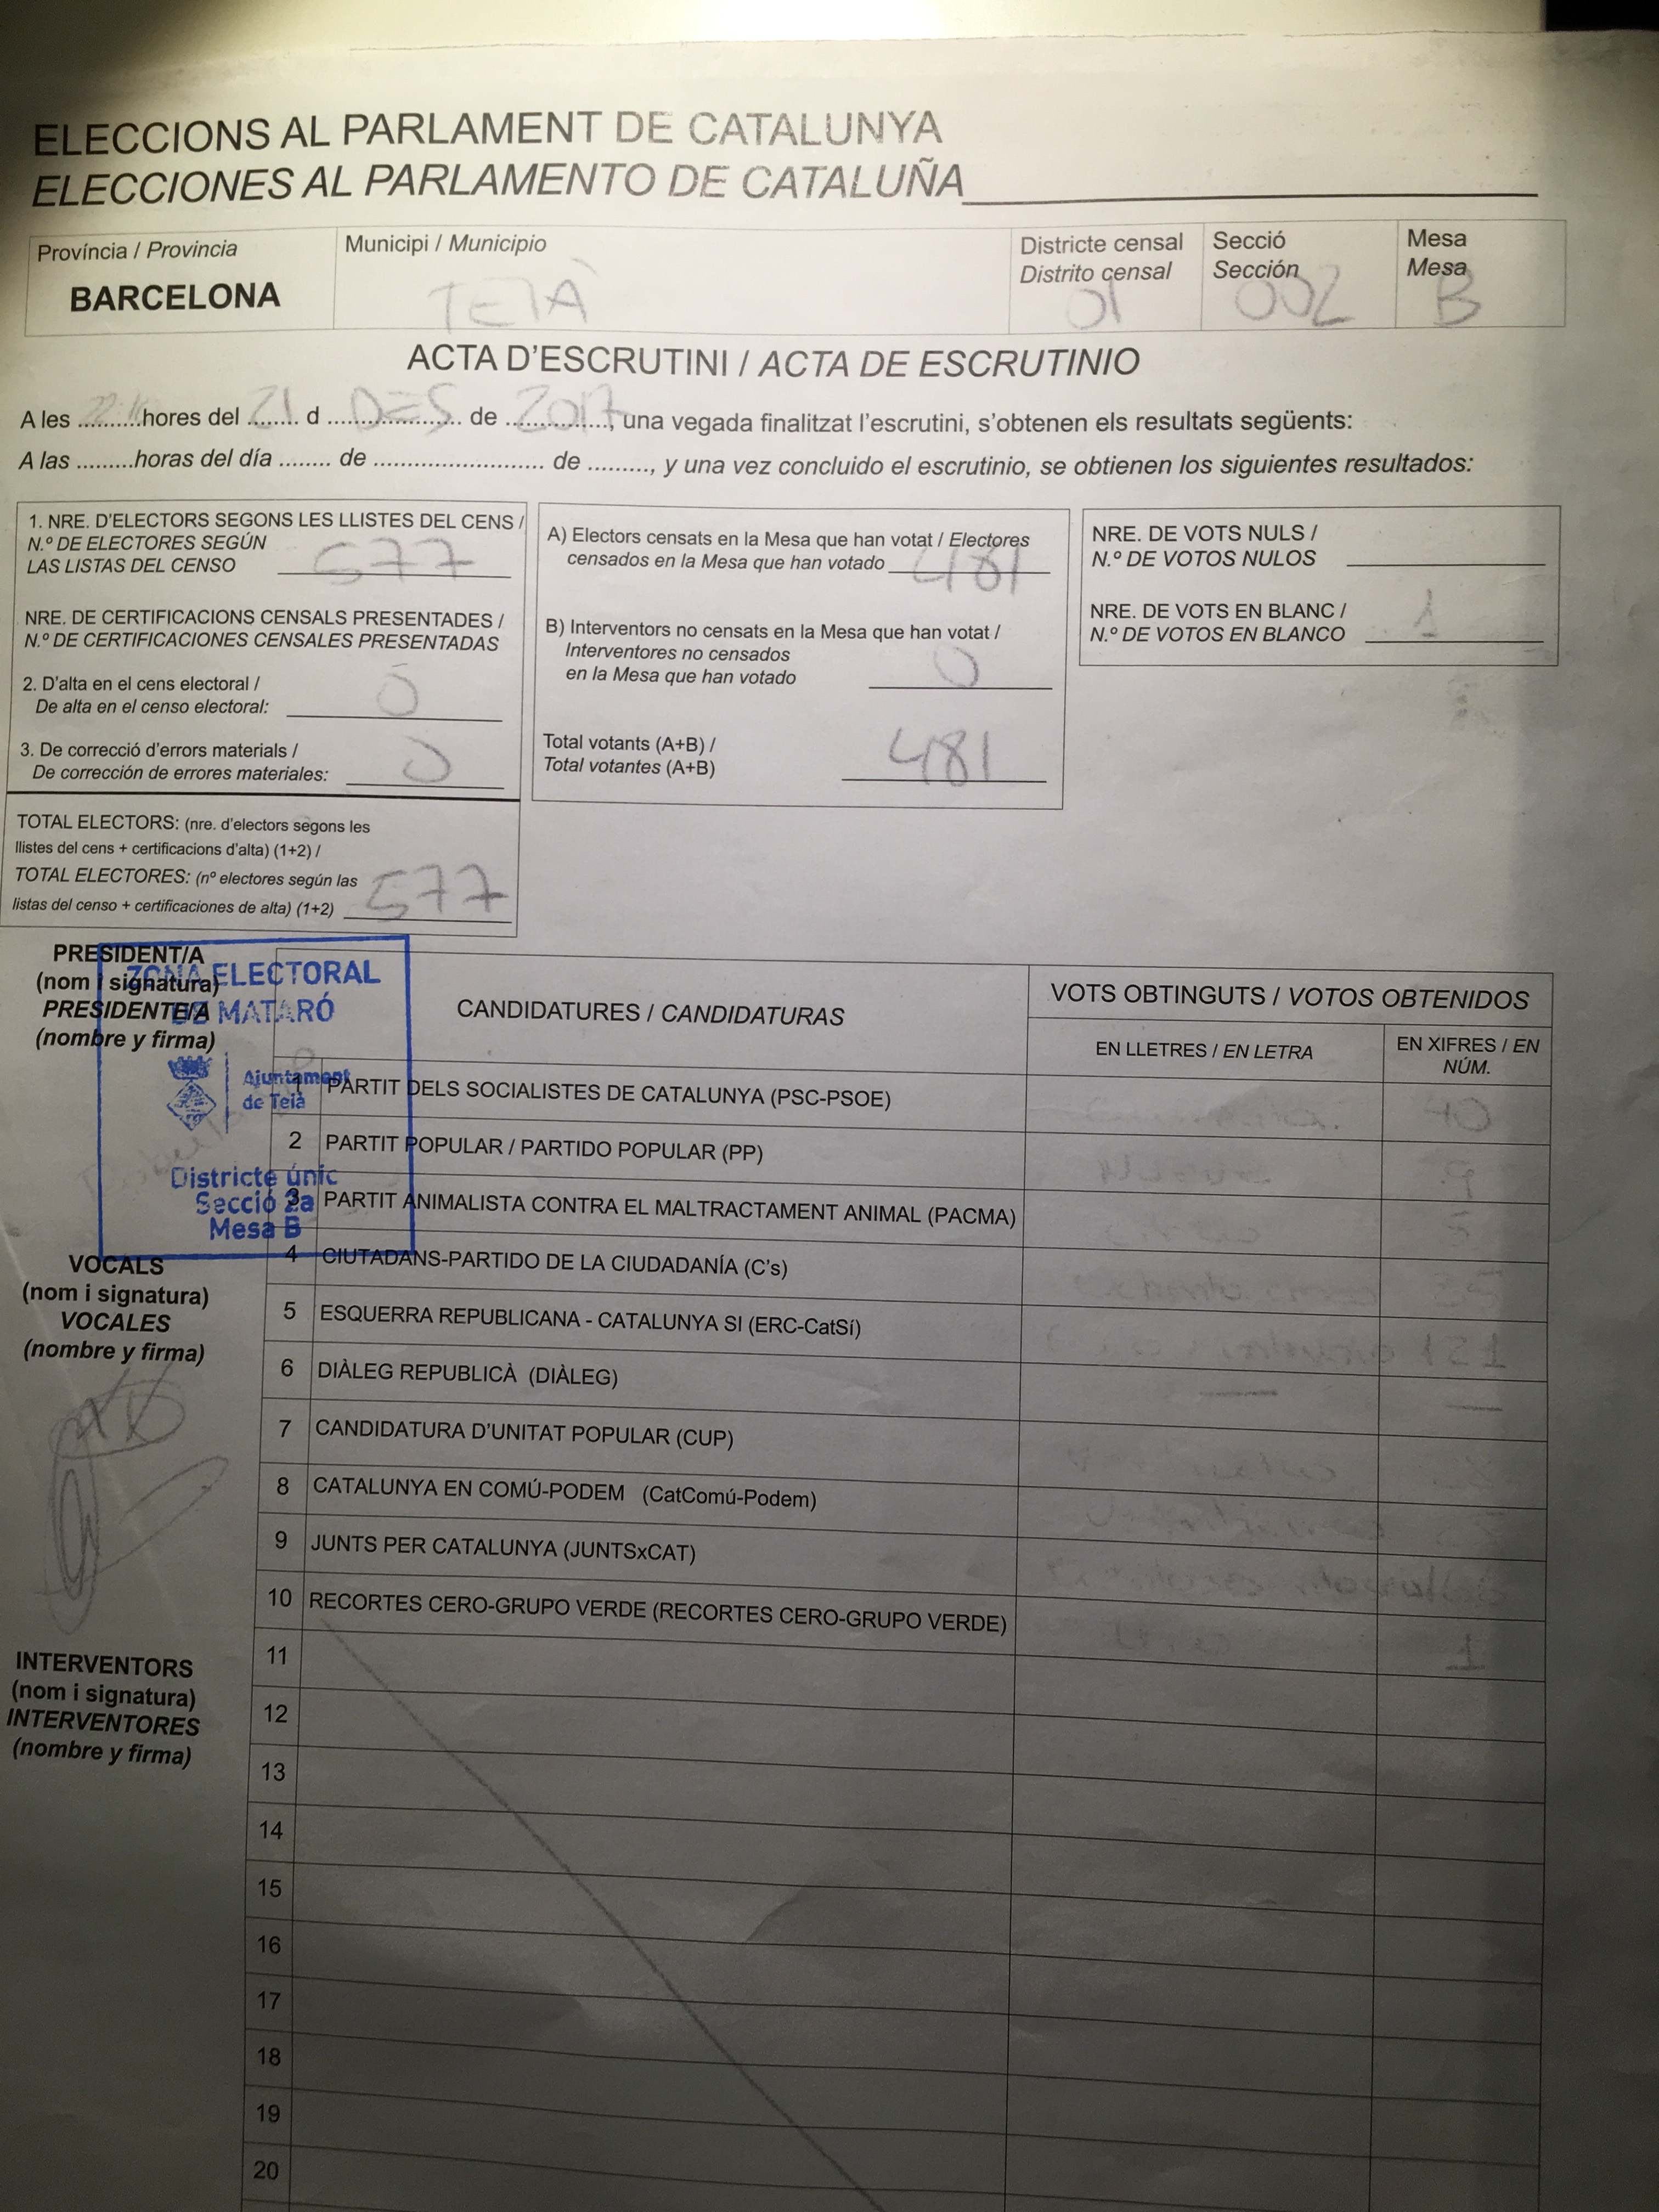 ELECCIONS AL PARLAMENT DE CATALUNYA
ELECCIONES AL PARLAMENTO DE CATALUÑA
Província / Provincia
BARCELONA
Municipi / Municipio
TEIÀ
Districte censal
Distrito censal
01
Secció
Sección
002
Mesa
Mesa
B
ACTA D'ESCRUTINI / ACTA DE ESCRUTINIO
A les ......... hores del 21 d DES de 2017, una vegada finalitzat l'escrutini, s'obtenen els resultats següents:
A las .........horas del día ........ de ........................ de ........., y una vez concluido el escrutinio, se obtienen los siguientes resultados:
1. NRE. D'ELECTORS SEGONS LES LLISTES DEL CENS /
N.º DE ELECTORES SEGÚN
LAS LISTAS DEL CENSO 577
NRE. DE CERTIFICACIONS CENSALS PRESENTADES /
N.º DE CERTIFICACIONES CENSALES PRESENTADAS
2. D'alta en el cens electoral /
De alta en el censo electoral: 0
3. De correcció d'errors materials /
De corrección de errores materiales: 0
TOTAL ELECTORS: (nre. d'electors segons les
llistes del cens + certificacions d'alta) (1+2) /
TOTAL ELECTORES: (nº electores según las
listas del censo + certificaciones de alta) (1+2) 577
A) Electors censats en la Mesa que han votat / Electores
censados en la Mesa que han votado 481
B) Interventors no censats en la Mesa que han votat /
Interventores no censados
en la Mesa que han votado 0
Total votants (A+B) /
Total votantes (A+B) 481
NRE. DE VOTS NULS /
N.º DE VOTOS NULOS
NRE. DE VOTS EN BLANC /
N.º DE VOTOS EN BLANCO 1
PRESIDENT/A
(nom i signatura)
PRESIDENTE/A
(nombre y firma)
ZONA ELECTORAL
DE MATARÓ
Ajuntament
de Teià
Districte únic
Secció 2a
Mesa B
VOCALS
(nom i signatura)
VOCALES
(nombre y firma)
INTERVENTORS
(nom i signatura)
INTERVENTORES
(nombre y firma)
CANDIDATURES / CANDIDATURAS
VOTS OBTINGUTS / VOTOS OBTENIDOS
EN LLETRES / EN LETRA
EN XIFRES / EN
NÚM.
1 PARTIT DELS SOCIALISTES DE CATALUNYA (PSC-PSOE)
2 PARTIT POPULAR / PARTIDO POPULAR (PP)
3 PARTIT ANIMALISTA CONTRA EL MALTRACTAMENT ANIMAL (PACMA)
4 CIUTADANS-PARTIDO DE LA CIUDADANÍA (C's)
5 ESQUERRA REPUBLICANA - CATALUNYA SI (ERC-CatSí)
6 DIÀLEG REPUBLICÀ (DIÀLEG)
7 CANDIDATURA D'UNITAT POPULAR (CUP)
8 CATALUNYA EN COMÚ-PODEM (CatComú-Podem)
9 JUNTS PER CATALUNYA (JUNTSxCAT)
10 RECORTES CERO-GRUPO VERDE (RECORTES CERO-GRUPO VERDE)
11
12
13
14
15
16
17
18
19
20